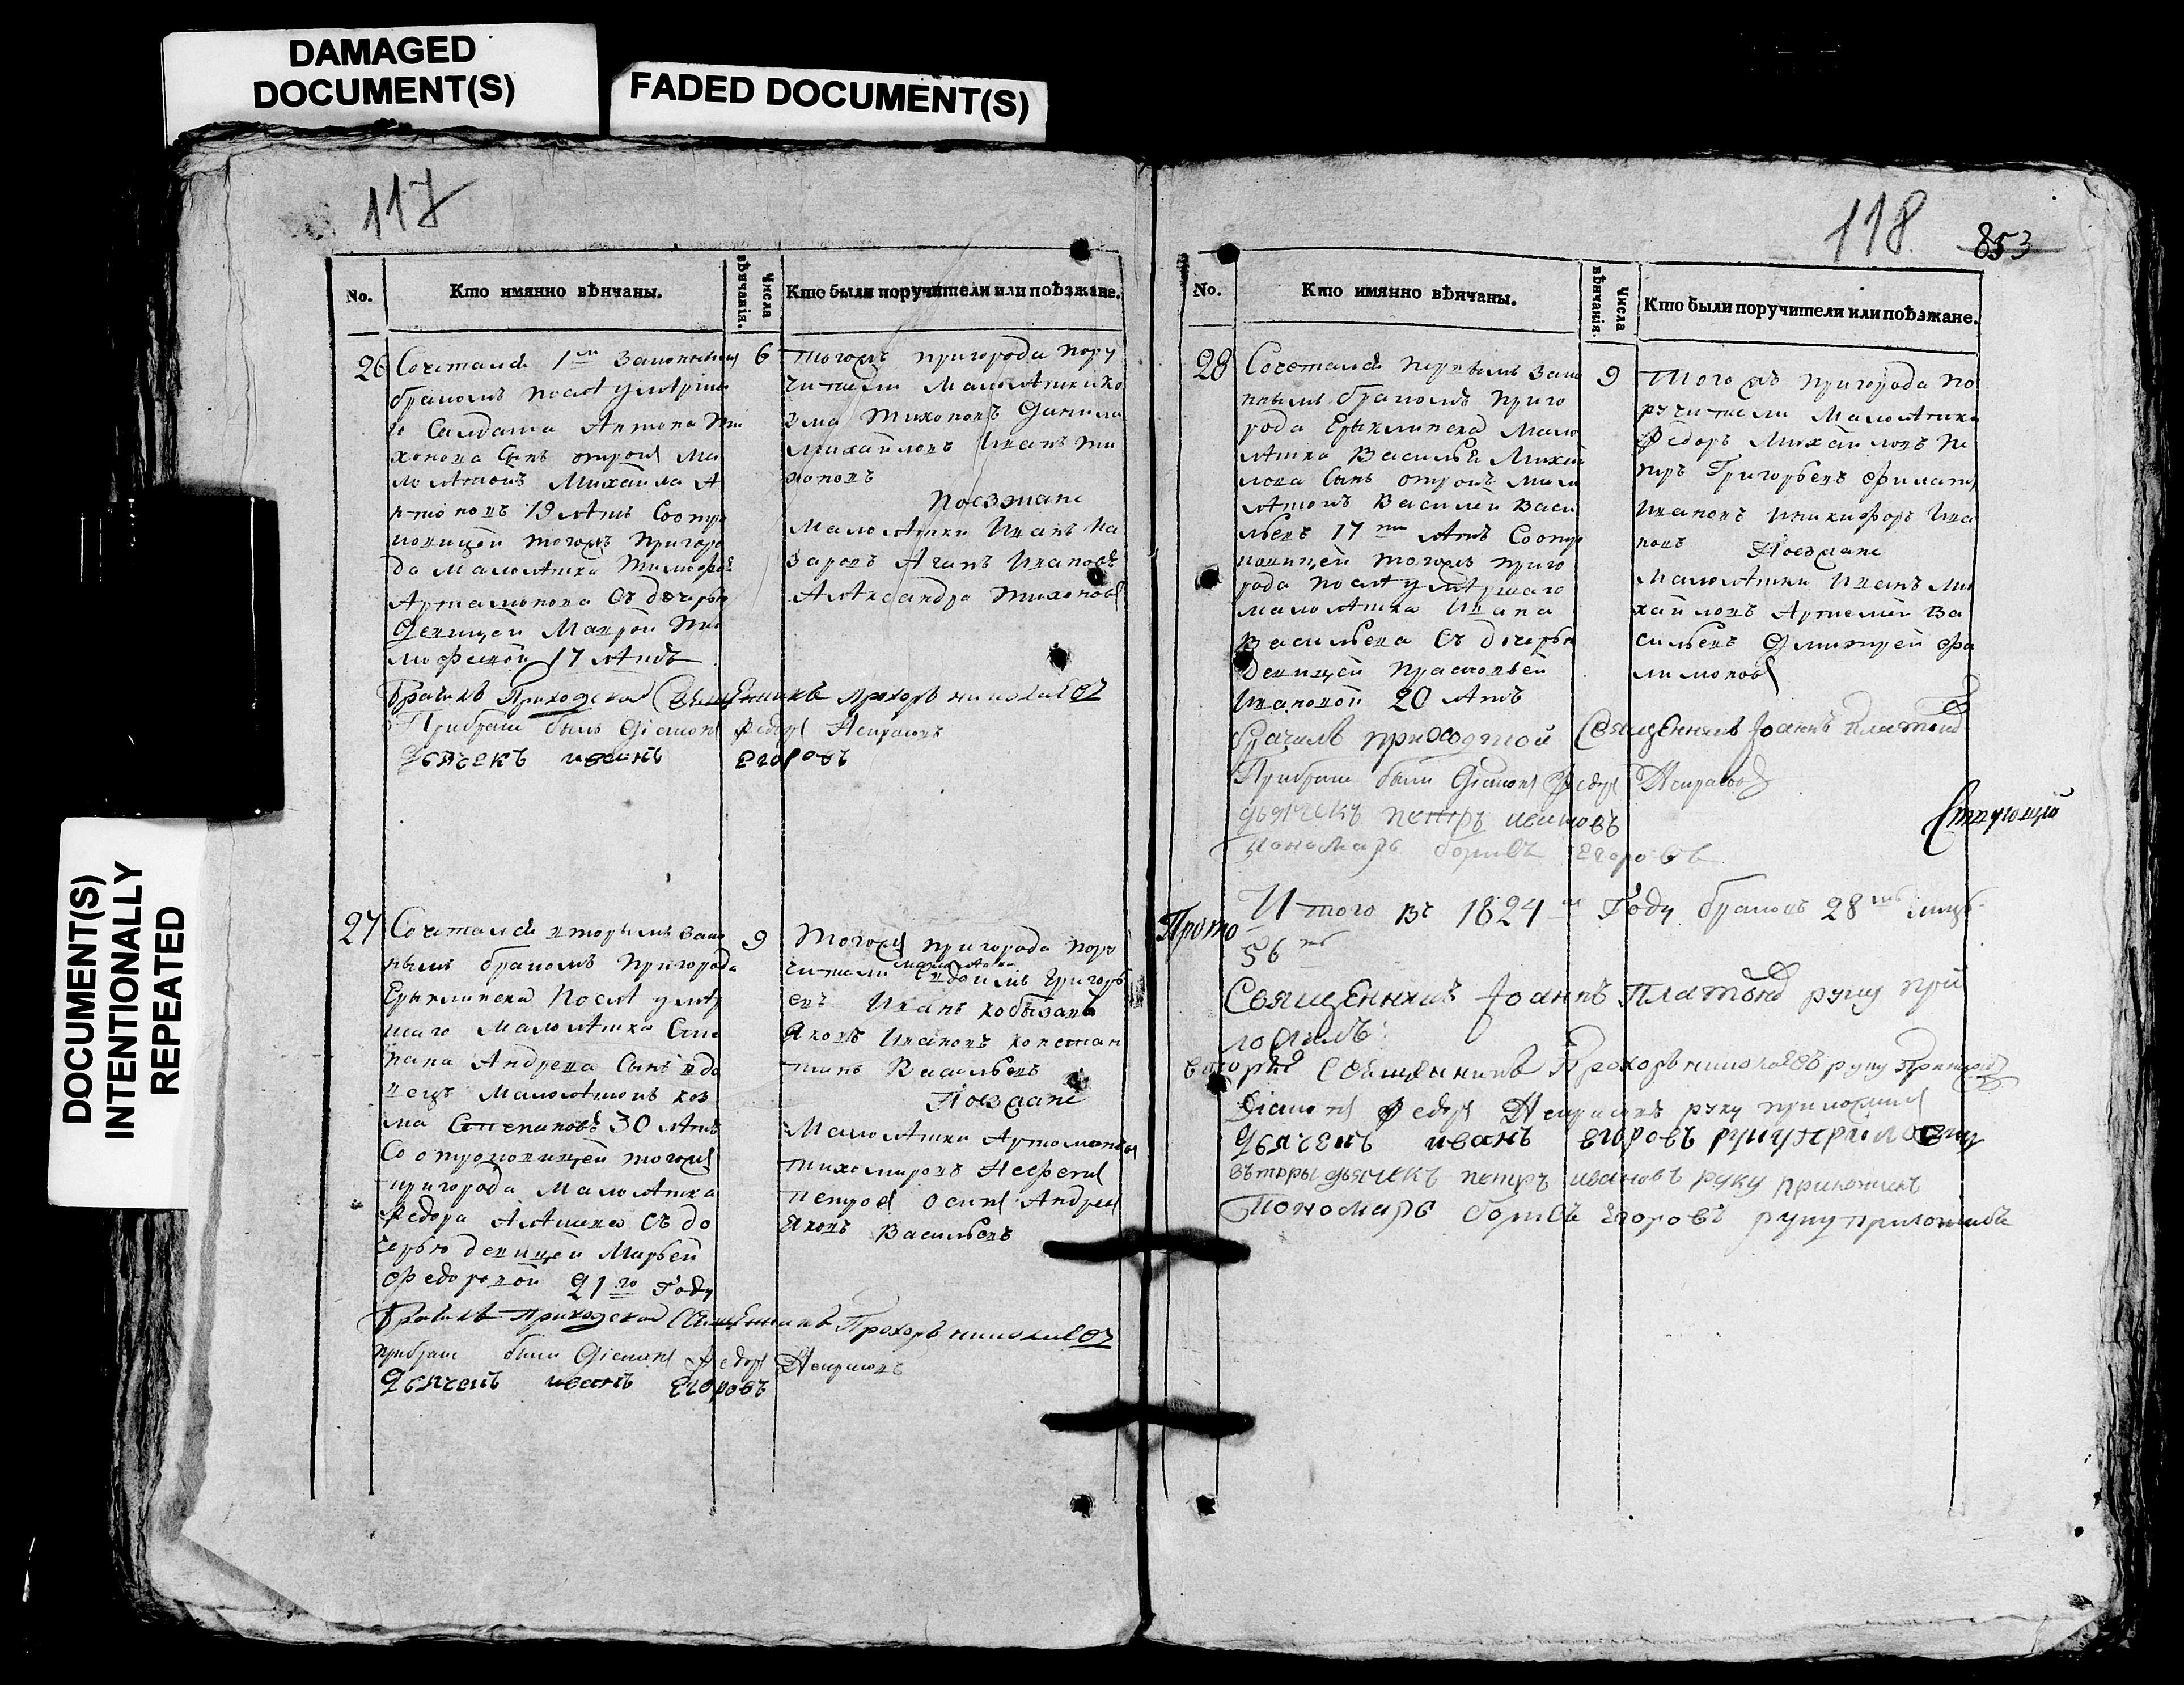 DAMAGED
DOCUMENT(S)
FADED DOCUMENT(S)
DOCUMENT(S)
INTENTIONALLY
REPEATED
117
No.
Кто имянно вѣнчаны.
Числа
вѣнчанія.
Кто были поручители или поѣзжане.
26
Сочетался 1м законным
бракомъ послѣ умерша
го Салдата Антона Ти
хонова Сынъ отрокъ Ма
лолѣтокъ Михаила А
нтоновъ 19 лѣтъ Соотро
ковицей тогожъ Пригоро
да малолѣтка Тимофея
Артамонова Съ дочерью
Девицей Маврой Ти
мофеевой 17 лѣтъ
6
тогожъ пригорода пору
чители Малолѣтки Ко
зма Тихоновъ Данила
Михайловъ Иванъ Ти
хоновъ
Поезжане
Малолѣтки Иванъ На
заровъ Агапъ Ивановъ
Алѣксандра Тихоновъ
Брачилъ Приходской Священникъ Прохоръ Николаевъ
Прибраке былъ Діаконъ Федоръ Некрасовъ
Дьячекъ иванъ егоровъ
27
Сочетался вторымъ зако
нымъ бракомъ Пригорода
Ерыклинска Послѣ умер
шаго малолѣтка Сте
пана Андрева Сынъ вдо
вецъ Малолѣтокъ Коз
ма Степановъ 30 лѣтъ
Соотроковицей тогожъ
пригорода Малолѣтка
Федора Алѣ Съ до
черью девицей Марьей
Федоровой 21го Году
9
Тогожъ пригорода пору
чители малолѣтки Григорь
евъ Иванъ Кобызавъ
Яковъ Ивановъ констан
тинъ Васильевъ
Поезжане
Малолѣтки Артомановъ
тихомировъ Нефедъ
петровъ Осипъ Андреи
Яковъ Васильевъ
Брачилъ приходской Священникъ Прохоръ николаевъ
прибраке были Діаконъ Федоръ Некрасовъ
Дьячекъ иванъ Егоровъ
118
853
No.
Кто имянно вѣнчаны.
Числа
вѣнчанія.
Кто были поручители или поѣзжане.
28
Сочетался первымъ зако
ннымъ бракомъ приго
рода Ерыклинска мало
лѣтка Василья Михай
лова Сынъ отрокъ мало
лѣтокъ Василей Васи
льевъ 17ти лѣтъ Соотро
ковицей тогожъ приго
рода послѣ умершаго
малолѣтка Ивана
Васильева Съ дочерью
Девицей Прасковьей
Ивановой 20 лѣтъ
9
Тогожъ пригорода по
ручители Малолѣтки
Федоръ Михайловъ Пе
тръ Григорьевъ Филатъ
Ивановъ иникифоръ Ива
новъ Поезжане
малолѣтки Иванъ Ми
хайловъ Артемей Ва
сильевъ Дмитрей Фи
лимоновъ
Брачилъ приходской Священникъ Іоаннъ Платоновъ
Прибраке были Діаконъ Федоръ Некрасовъ
дьячекъ петръ ивановъ
пономарь борисъ егоровъ
Итого въ 1824м Году браковъ 28мь лицъ
56ть
Прото
Священникъ Іоаннъ Платоновъ руку при
ложилъ
вторый Священникъ Прохоръ николаевъ руку приложилъ
Діаконъ Федоръ Некрасовъ руку приложилъ
Дьячекъ иванъ егоровъ руку приложилъ
вторы дьячекъ петръ ивановъ руку приложилъ
Пономарь борисъ егоровъ руку приложилъ